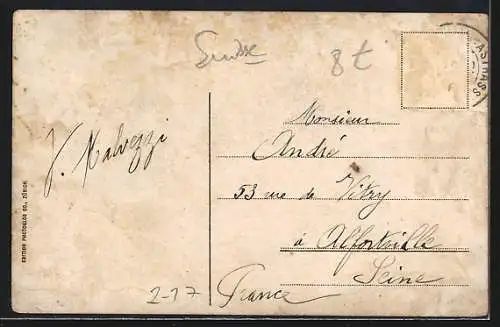 Suisse
8 t
Monsieur
André
V. Malvezzi
53 rue de Vitry
à Alfortville
Seine
France
2-17
EDITION PHOTOGLOB CO., ZÜRICH